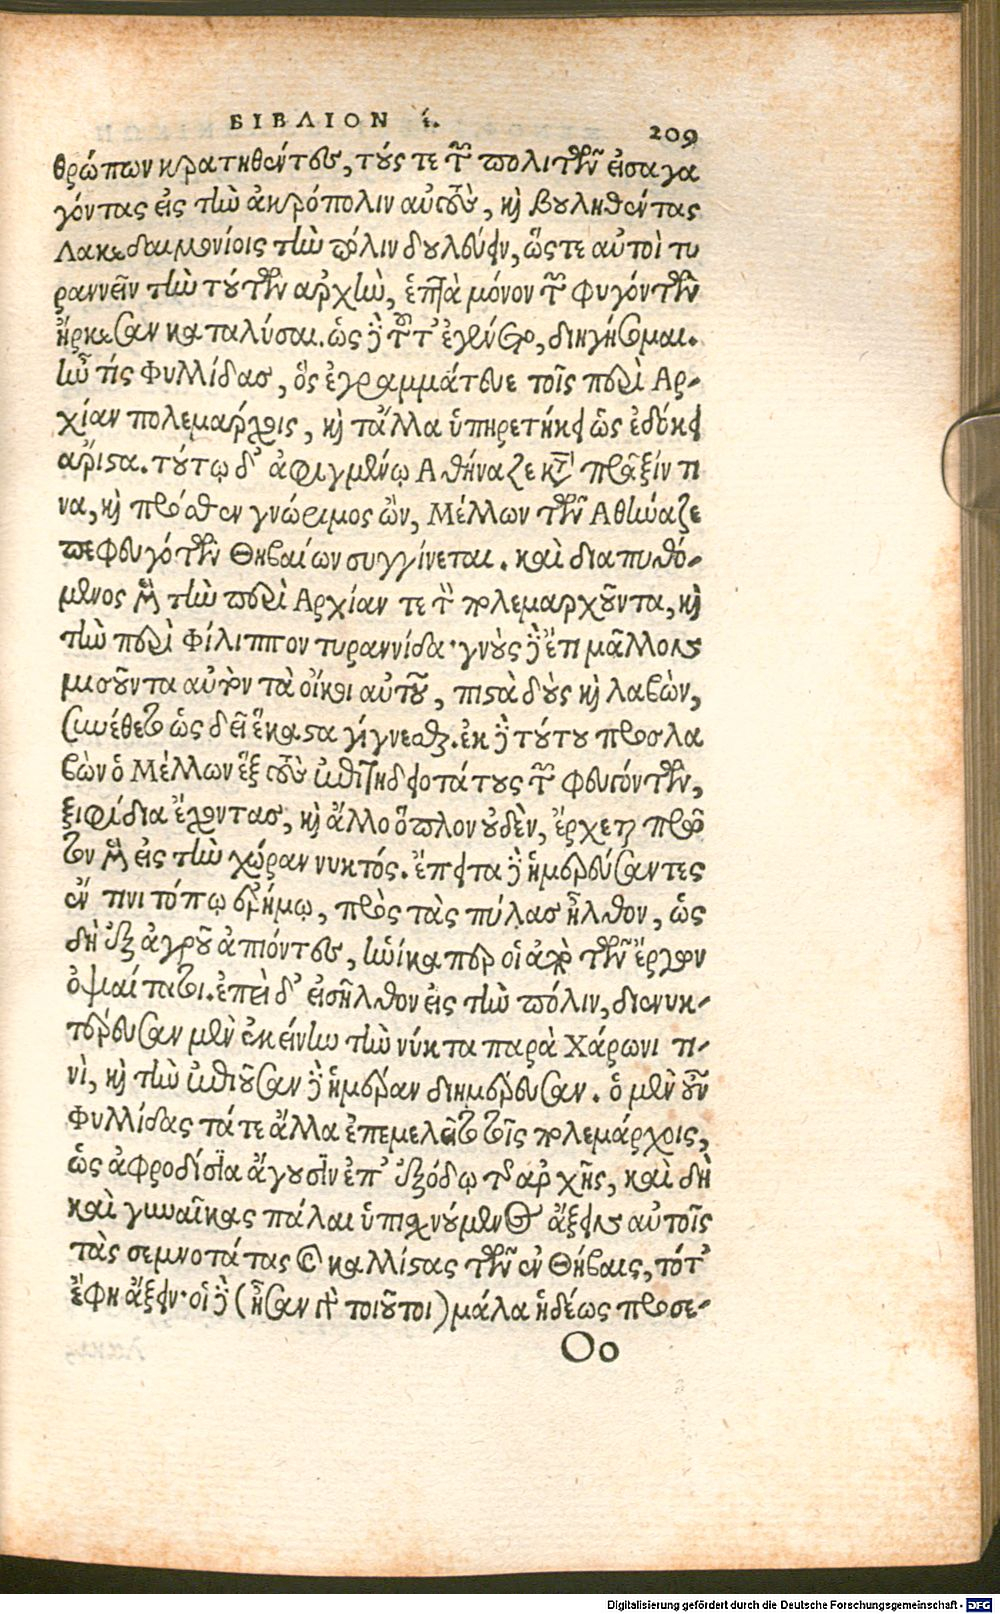 ΒΙΒΛΙΟΝ ἕ.
209
θρώπων κρατηθέντες, τούς τε τῶν πολιτῶν εἰσαγα
γόντας εἰς τὴν ἀκρόπολιν αὐτοὺς, καὶ βουληθέντας
Λακεδαιμονίοις τὴν πόλιν δουλεύειν, ὥςτε αὐτοὶ τυ
ραννεῖν τὴν τούτων ἀρχὴν, ἑπτὰ μόνον τῶν φυγόντων
ἤρκεσαν καταλύσαι. ὡς δὲ τοῦτ' ἐγένετο, διηγήσομαι.
ἦν τίς Φυλλίδας, ὃς ἐγραμμάτευε τοῖς περὶ Αρ-
χίαν πολεμάρχοις, καὶ τἄλλα ὑπηρετήκει ὡς ἐδόκει
ἄριστα. τούτῳ δ' ἀφιγμένῳ Αθήναζε κατὰ πρᾶξίν τι
να, καὶ πρόσθεν γνώριμος ὢν, Μέλλων τῶν Αθήναζε
πεφευγότων Θηβαίων συγγίνεται. καὶ διαπυθό-
μενος μὲν τὴν περὶ Αρχίαν τε τὸν πολεμαρχοῦντα, καὶ
τὴν περὶ Φίλιππον τυραννίδα· γνοὺς δὲ ἔτι μᾶλλον
μισοῦντα αὐτὸν τὰ οἴκοι αὐτοῦ, πιστὰ δοὺς καὶ λαβὼν,
συνέθετο ὡς δεῖ ἕκαστα γίγνεσθαι. ἐκ δὲ τούτου προσλα
βὼν ὁ Μέλλων ἓξ τοὺς ἐπιτηδειοτάτους τῶν φευγόντων,
ξιφίδια ἔχοντας, καὶ ἄλλο ὅπλον οὐδὲν, ἔρχεται πρῶ
τον μὲν εἰς τὴν χώραν νυκτός. ἔπειτα δὲ ἡμερεύσαντες
ἔν τινι τόπῳ ἐρήμῳ, πρὸς τὰς πύλας ἦλθον, ὡς
δὴ ἐξ ἀγροῦ ἀπιόντες, ἡνίκα περ οἱ ἀπὸ τῶν ἔργων
ὀψαίτατοι. ἐπεὶ δ' εἰσῆλθον εἰς τὴν πόλιν, διενυκ-
τέρευσαν μὲν ἐκείνην τὴν νύκτα παρὰ Χάρωνι τι-
νὶ, καὶ τὴν ἐπιοῦσαν δὲ ἡμέραν διημέρευσαν. ὁ μὲν οὖν
Φυλλίδας τά τε ἄλλα ἐπεμελεῖτο τοῖς πολεμάρχοις,
ὡς ἀφροδίσια ἄγουσιν ἐπ' ἐξόδῳ τῆς ἀρχῆς, καὶ δὴ
καὶ γυναῖκας πάλαι ὑπισχνούμενος ἄξειν αὐτοῖς
τὰς σεμνοτάτας καὶ καλλίστας τῶν ἐν Θήβαις, τότ'
ἔφη ἄξειν· οἱ δὲ (ἦσαν γὰρ τοιοῦτοι) μάλα ἡδέως προσε-
Oo
Digitalisierung gefördert durch die Deutsche Forschungsgemeinschaft - DFG